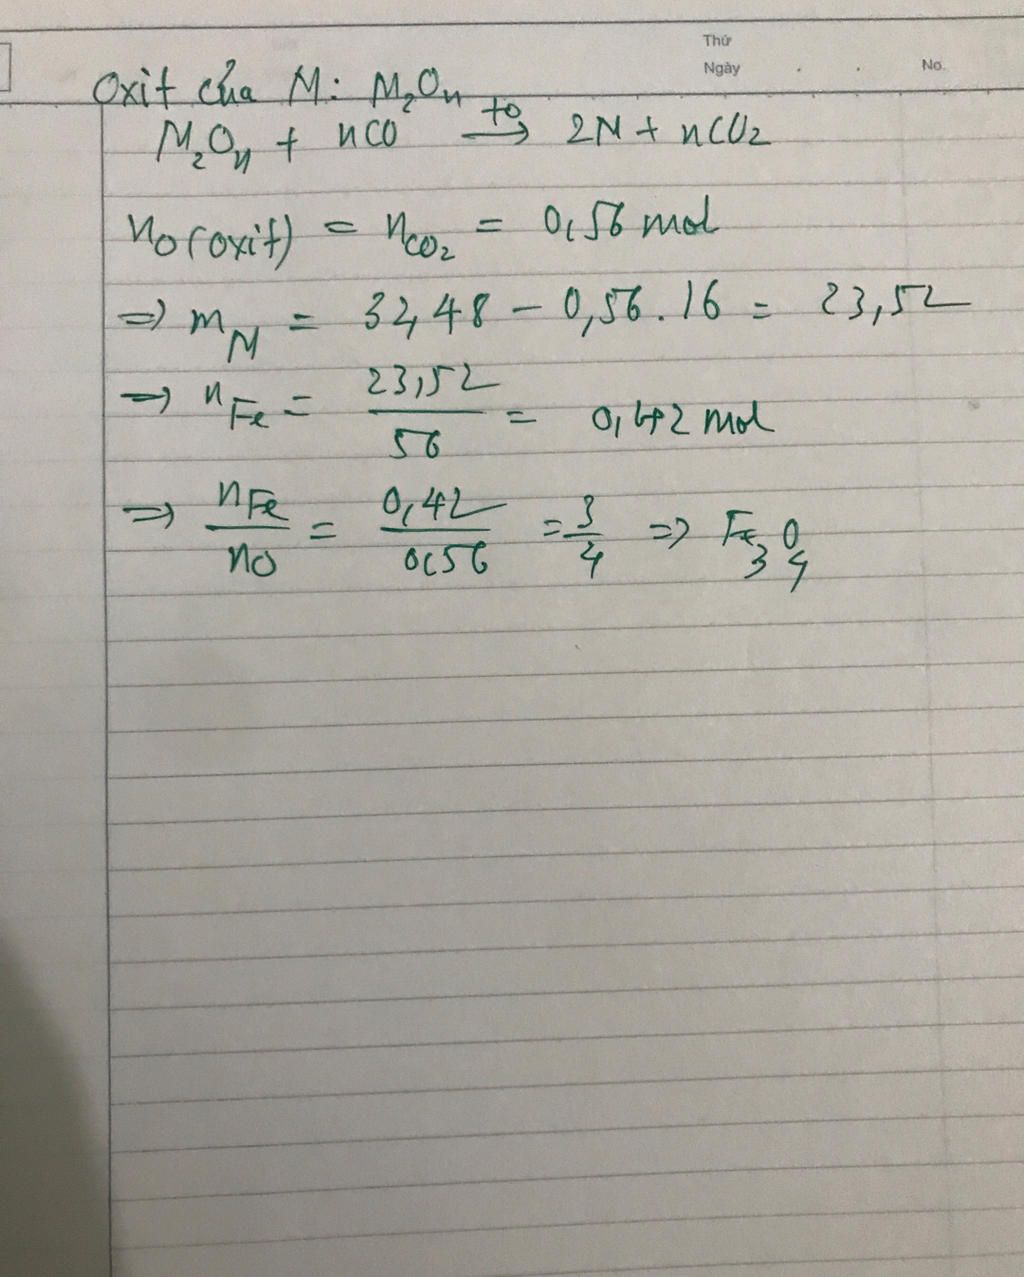 Thứ
Ngày . . No.
Oxit của M: M₂Oₙ
M₂Oₙ + nCO →(to) 2M + nCO₂
nO(oxit) = nCO₂ = 0,56 mol
=> mM = 32,48 - 0,56.16 = 23,52
=> nFe = 23,52/56 = 0,42 mol
=> nFe/nO = 0,42/0,56 = 3/4 => Fe₃O₄